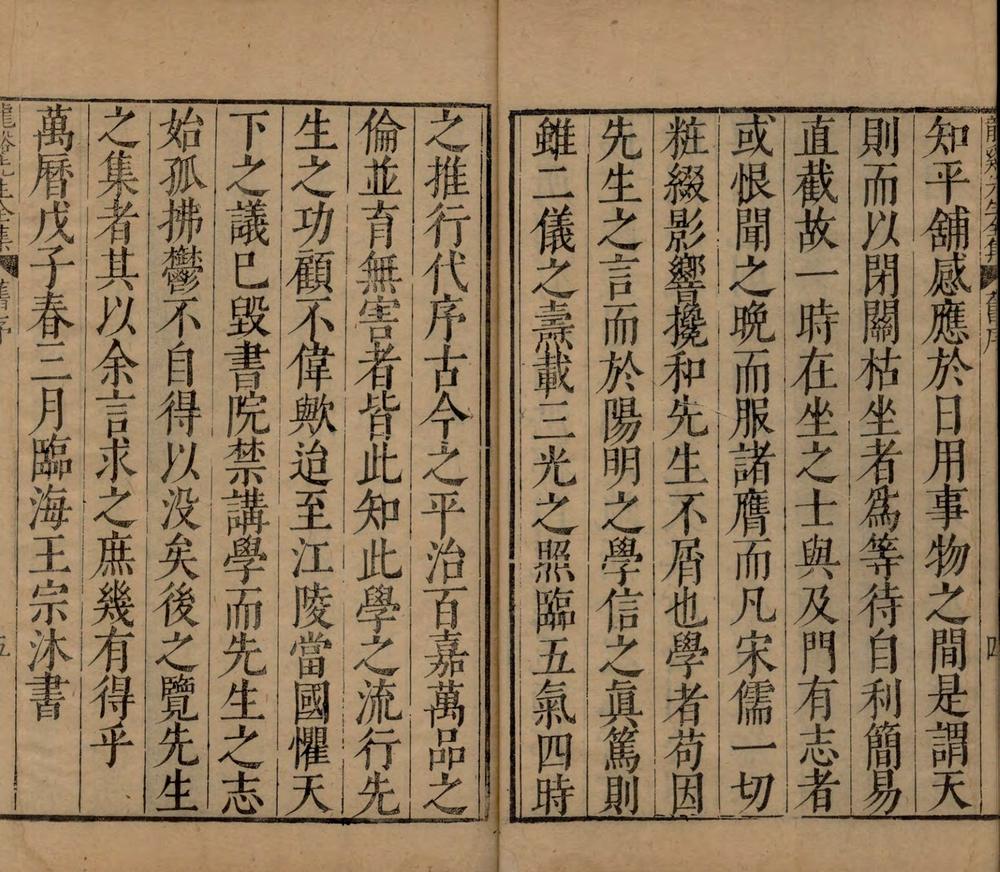 龍谿先生全集 舊序 四
知平舖感應於日用事物之間是謂天
則而以閉關枯坐者爲等待自利簡易
直截故一時在坐之士與及門有志者
或恨聞之晚而服諸膺而凡宋儒一切
粧綴影響攙和先生不屑也學者苟因
先生之言而於陽明之學信之眞篤則
雖二儀之壽載三光之照臨五氣四時
之推行代序古今之平治百嘉萬品之
倫並育無害者皆此知此學之流行先
生之功顧不偉歟迨至江陵當國懼天
下之議已毀書院禁講學而先生之志
始孤拂鬱不自得以没矣後之覽先生
之集者其以余言求之庶幾有得乎
萬曆戊子春三月臨海王宗沐書
龍谿先生全集 舊序 五